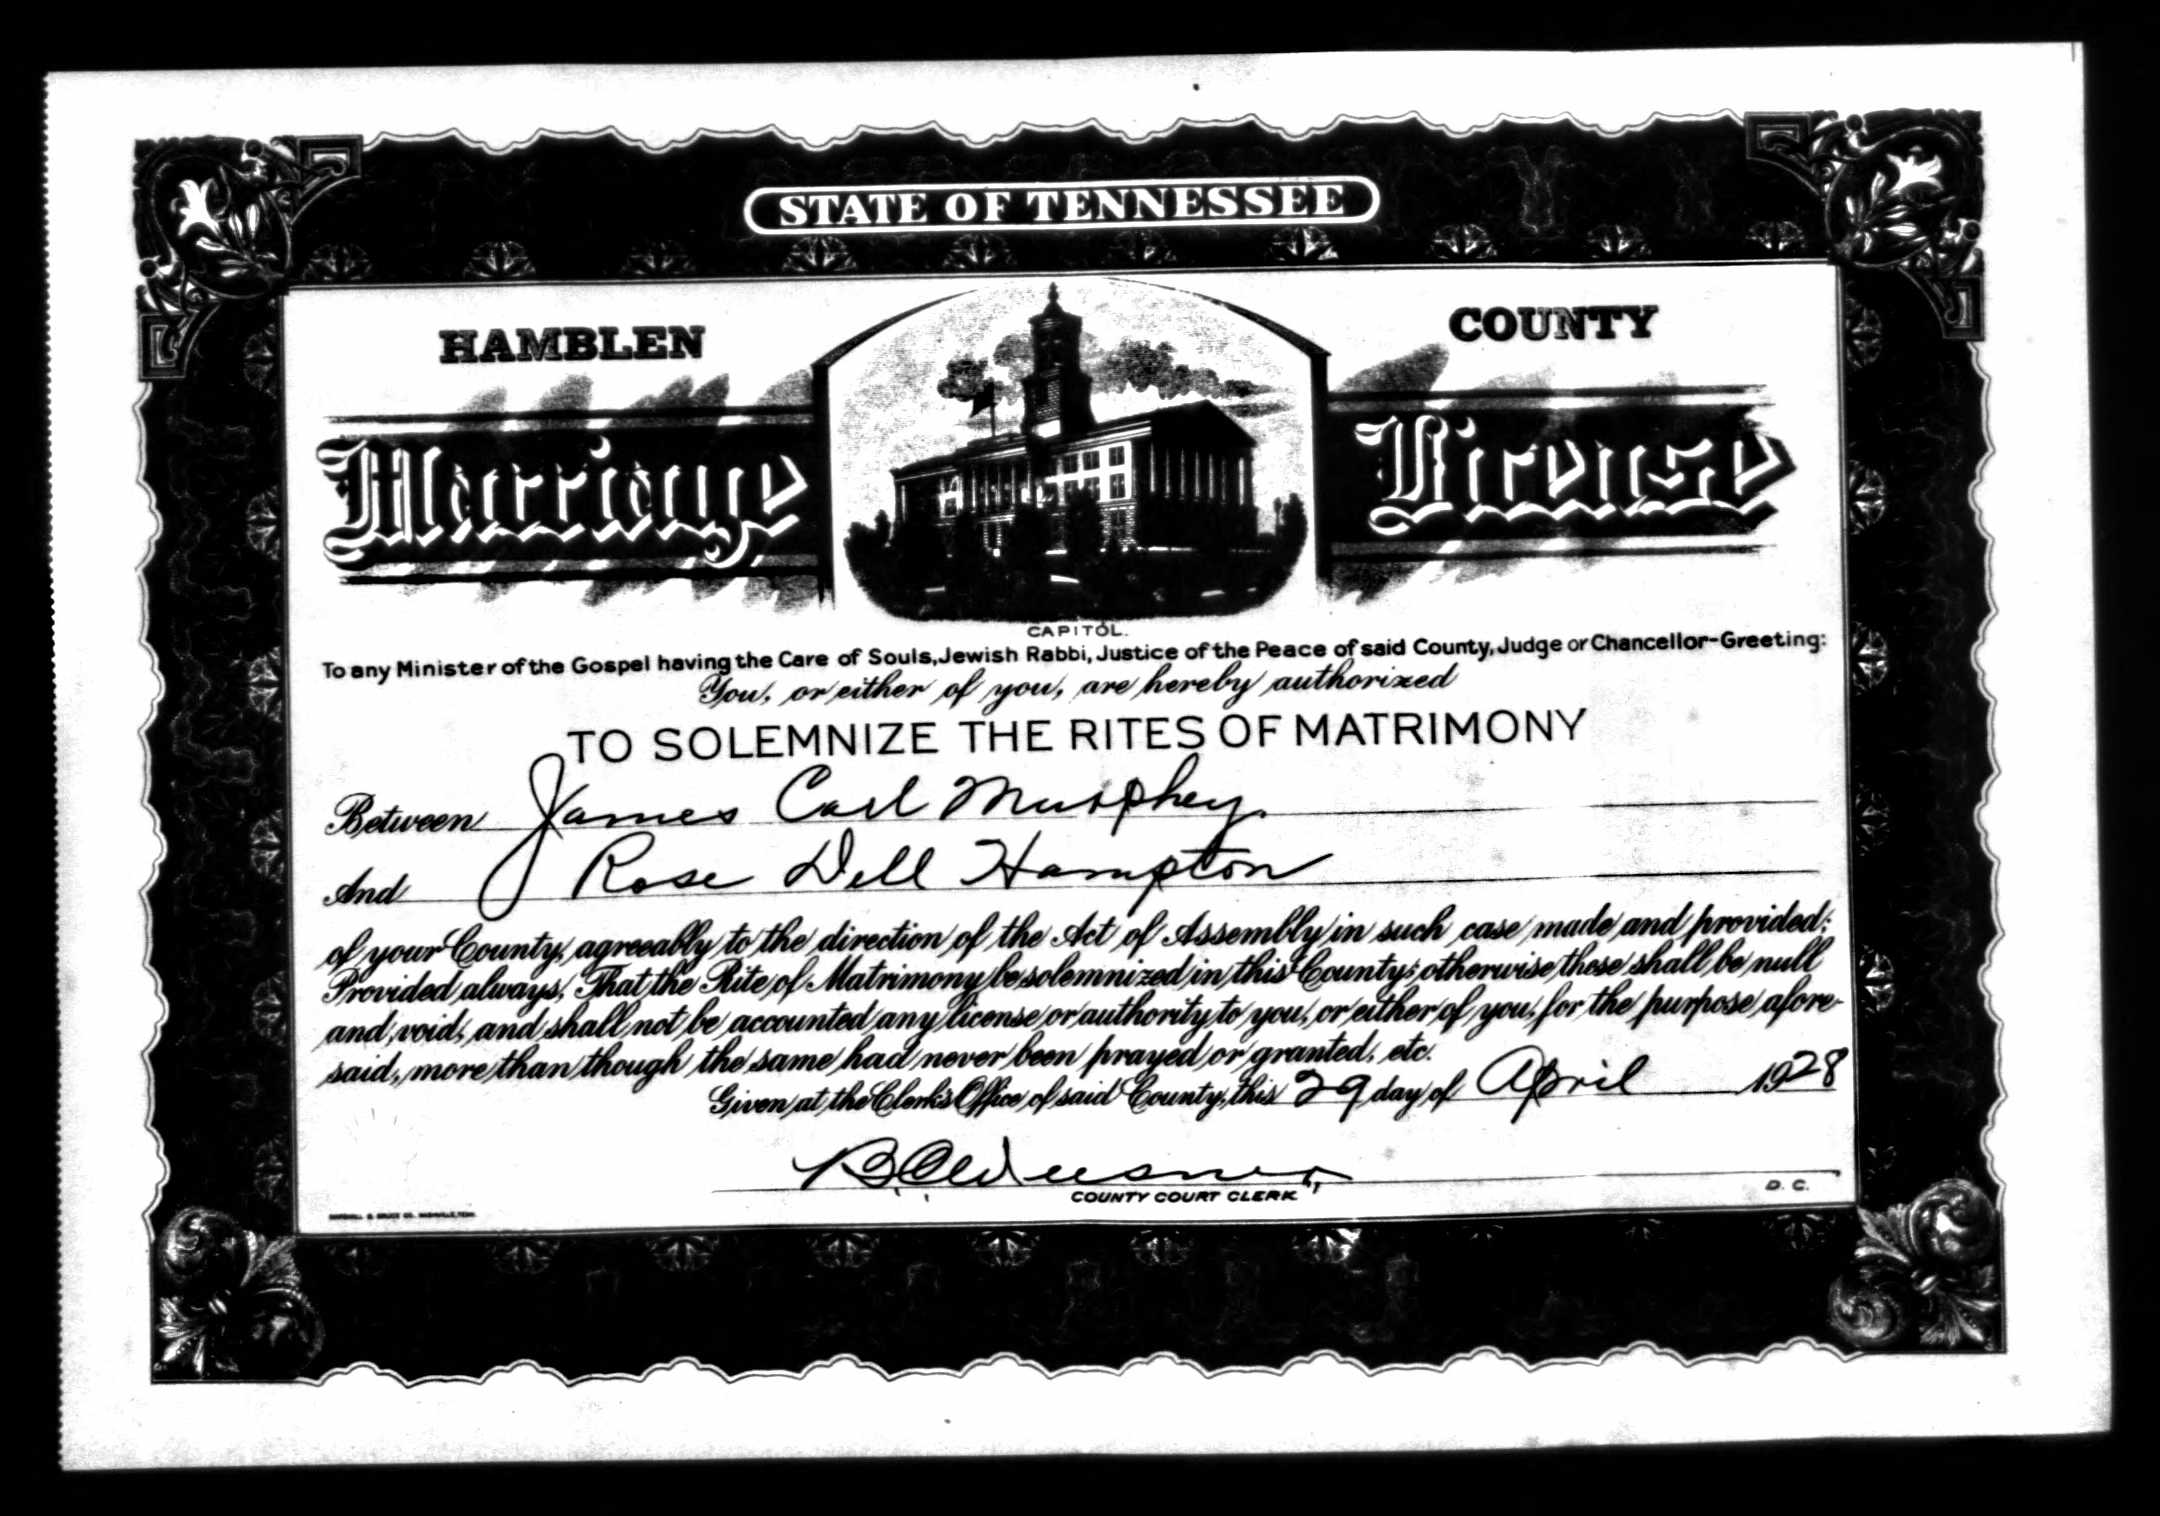 STATE OF TENNESSEE
HAMBLEN COUNTY
Marriage License
CAPITOL.
To any Minister of the Gospel having the Care of Souls, Jewish Rabbi, Justice of the Peace of said County, Judge or Chancellor-Greeting:
You, or either of you, are hereby authorized
TO SOLEMNIZE THE RITES OF MATRIMONY
Between James Carl Murphey
And Rose Dell Hampton
of your County, agreeably to the direction of the Act of Assembly in such case made and provided;
Provided always, That the Rite of Matrimony be solemnized in this County; otherwise these shall be null
and void, and shall not be accounted any license or authority to you, or either of you, for the purpose afore-
said, more than though the same had never been prayed or granted, etc.
Given at the Clerk's Office of said County, this 29 day of April 1928
COUNTY COURT CLERK
D. C.
MARSHALL & BRUCE CO. NASHVILLE, TENN.